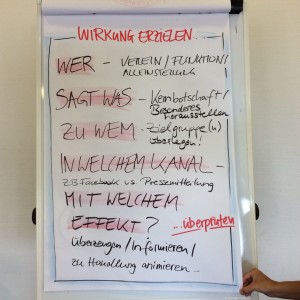 WIRKUNG ERZIELEN...
WER - VEREIN/FUNKTION/
ALLEINSTELLUNG
SAGT WAS - Kernbotschaft/
Besonderes
herausstellen
ZU WEM - Zielgruppe(n)
überlegen!
IN WELCHEM KANAL -
z.B. Facebook vs. Pressemitteilung
MIT WELCHEM
EFFEKT?
...überprüfen
überzeugen/informieren/
zu Handlung animieren...